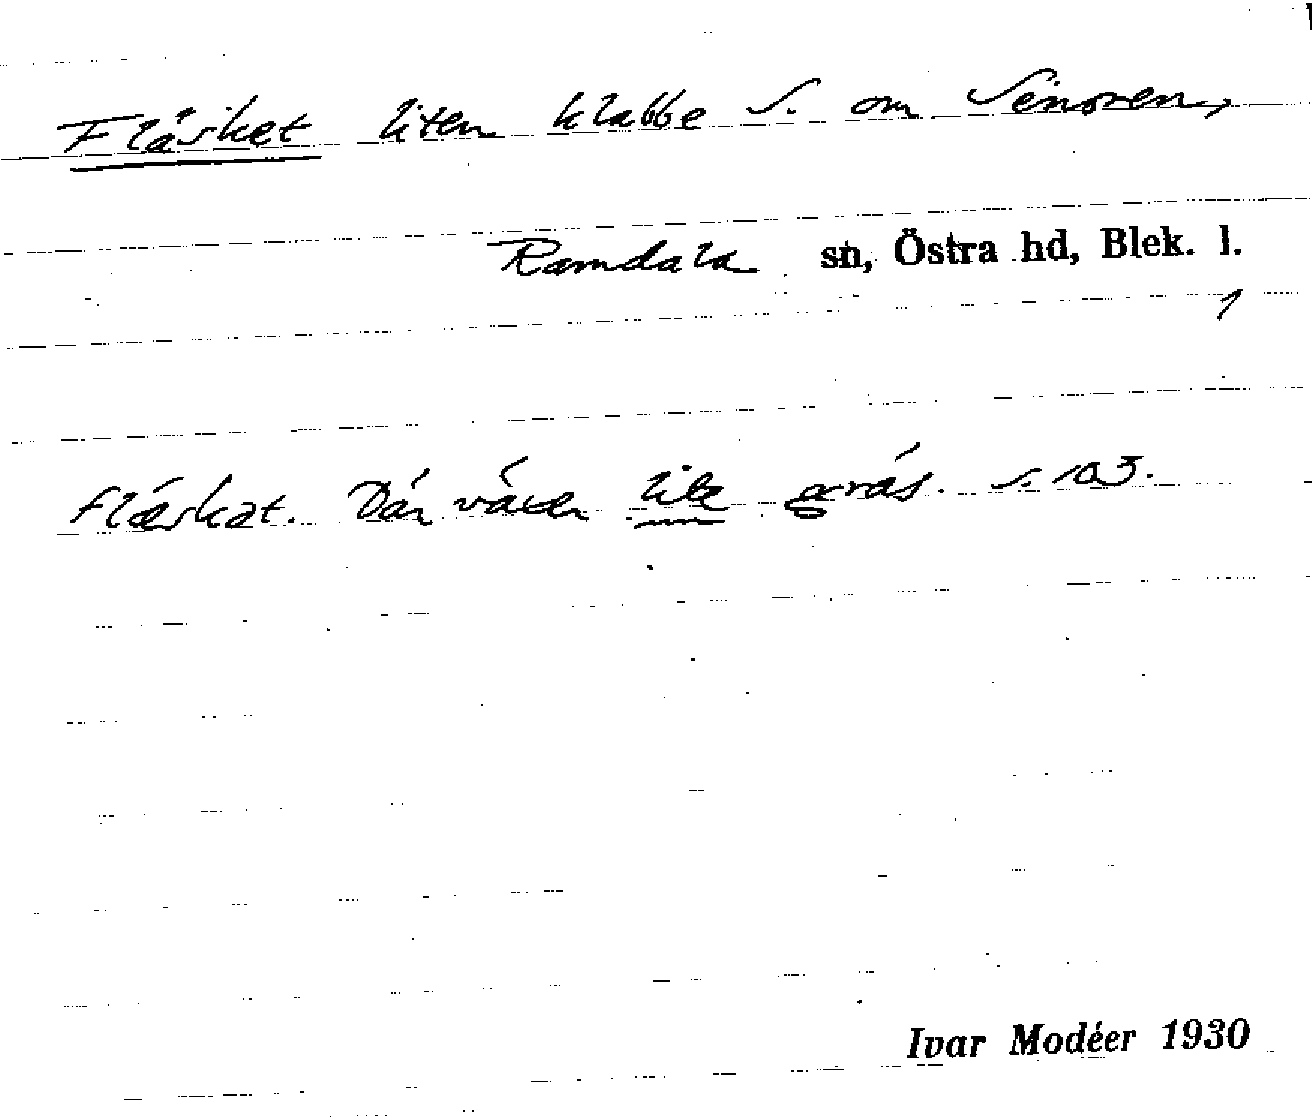 Fläsket liten klabbe S. om Senoren,
Ramdala sn, Östra hd, Blek. l.
1
flæskat. Där växer lite gräs. s. 103.
Ivar Modéer 1930